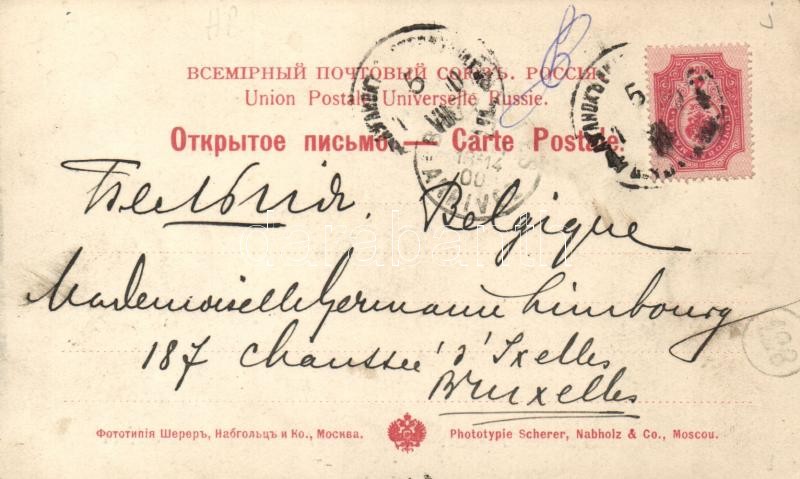 ВСЕМІРНЫЙ ПОЧТОВЫЙ СОЮЗЪ. РОССІЯ.
Union Postale Universelle Russie.
Открытое письмо — Carte Postale.
Бельгія. Belgique
Mademoiselle Germaine Limbourg
187 Chaussée d'Ixelles
Bruxelles
Фототипія Шереръ, Набгольцъ и Ко., Москва.
Phototypie Scherer, Nabholz & Co., Moscou.